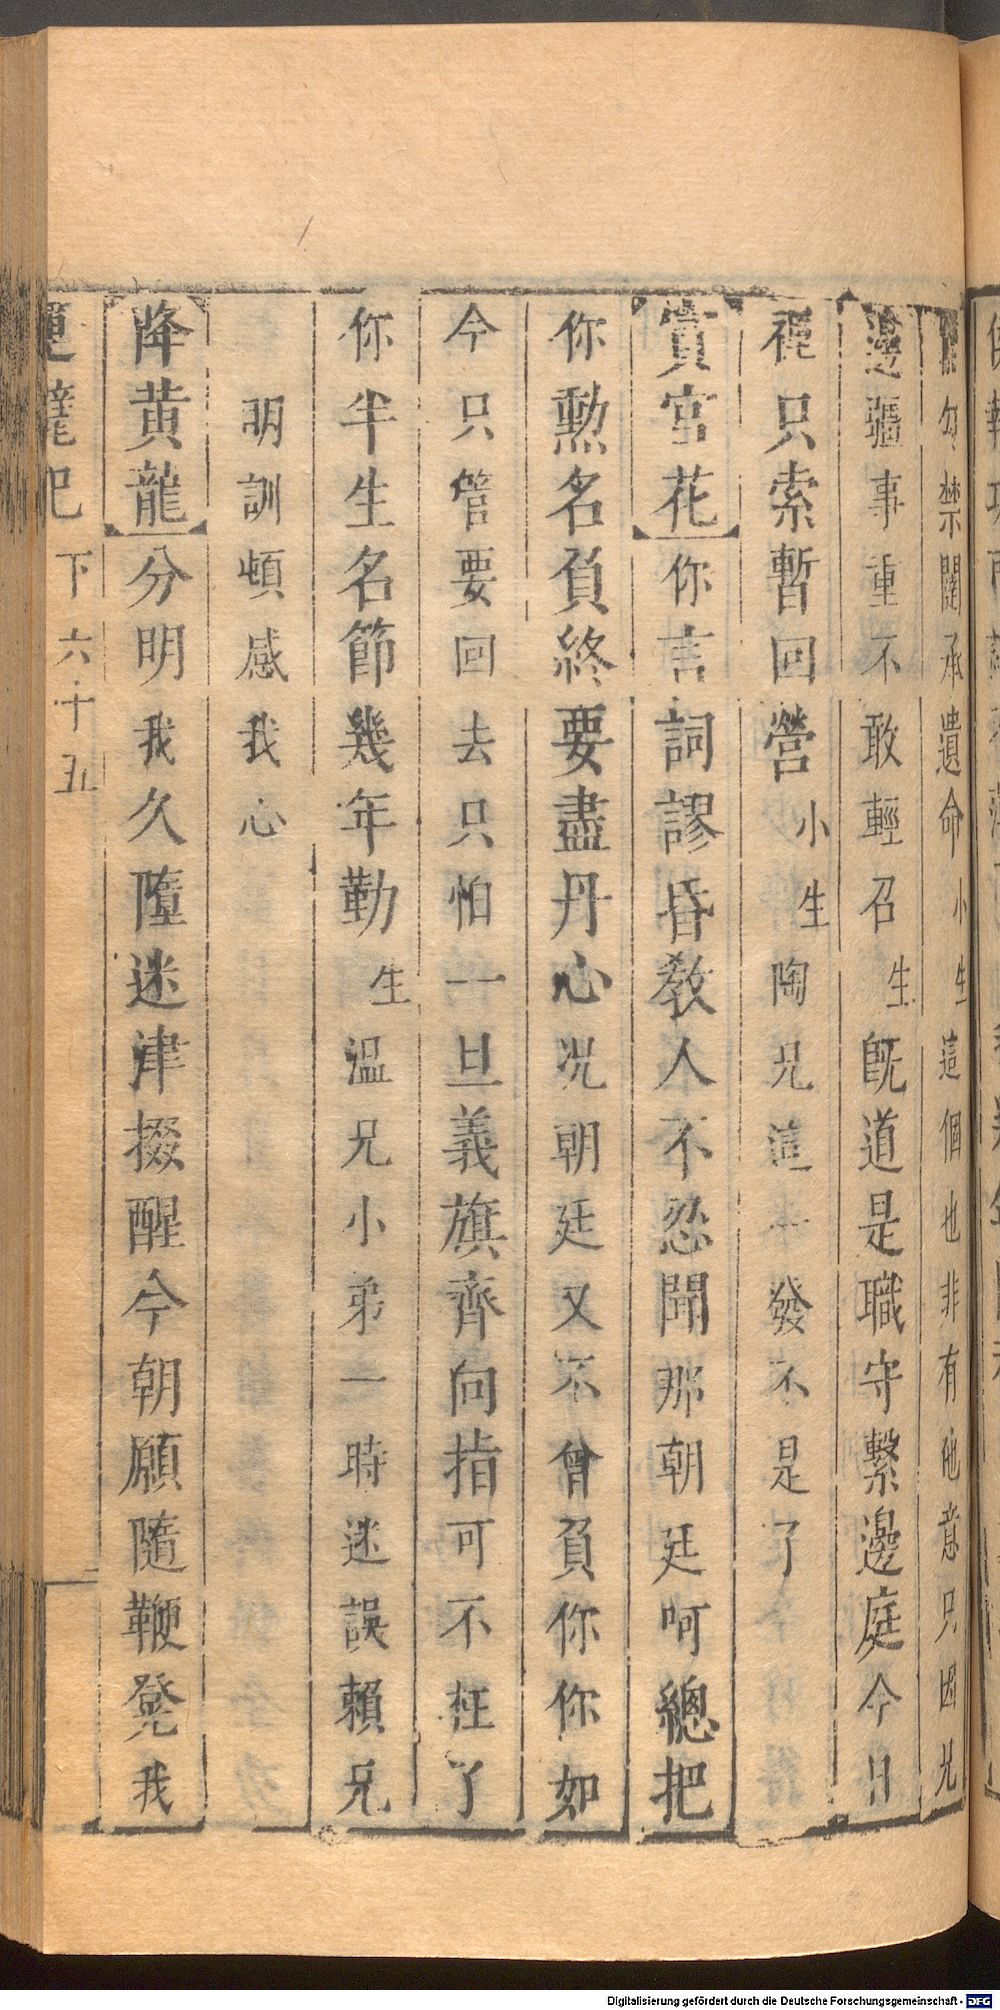 勾禁闥承遺命小生這個也非有他意只因兄
邊疆事重不敢輕召生旣道是職守繫邊庭今日
裡只索暫回營小生陶兄這 發不是了
賞宮花你言詞謬昏教人不忍聞那朝廷呵總把
你勲名負終要盡丹心况朝廷又不曾負你你如
今只管要回去只怕一旦義旗齊向指可不枉了
你半生名節幾年勤生温兄小弟一時迷誤賴兄
明訓頓感我心
降黄龍分明我久墮迷津掇醒今朝願隨鞭凳我
記 下六十五
Digitalisierung gefördert durch die Deutsche Forschungsgemeinschaft - DFG